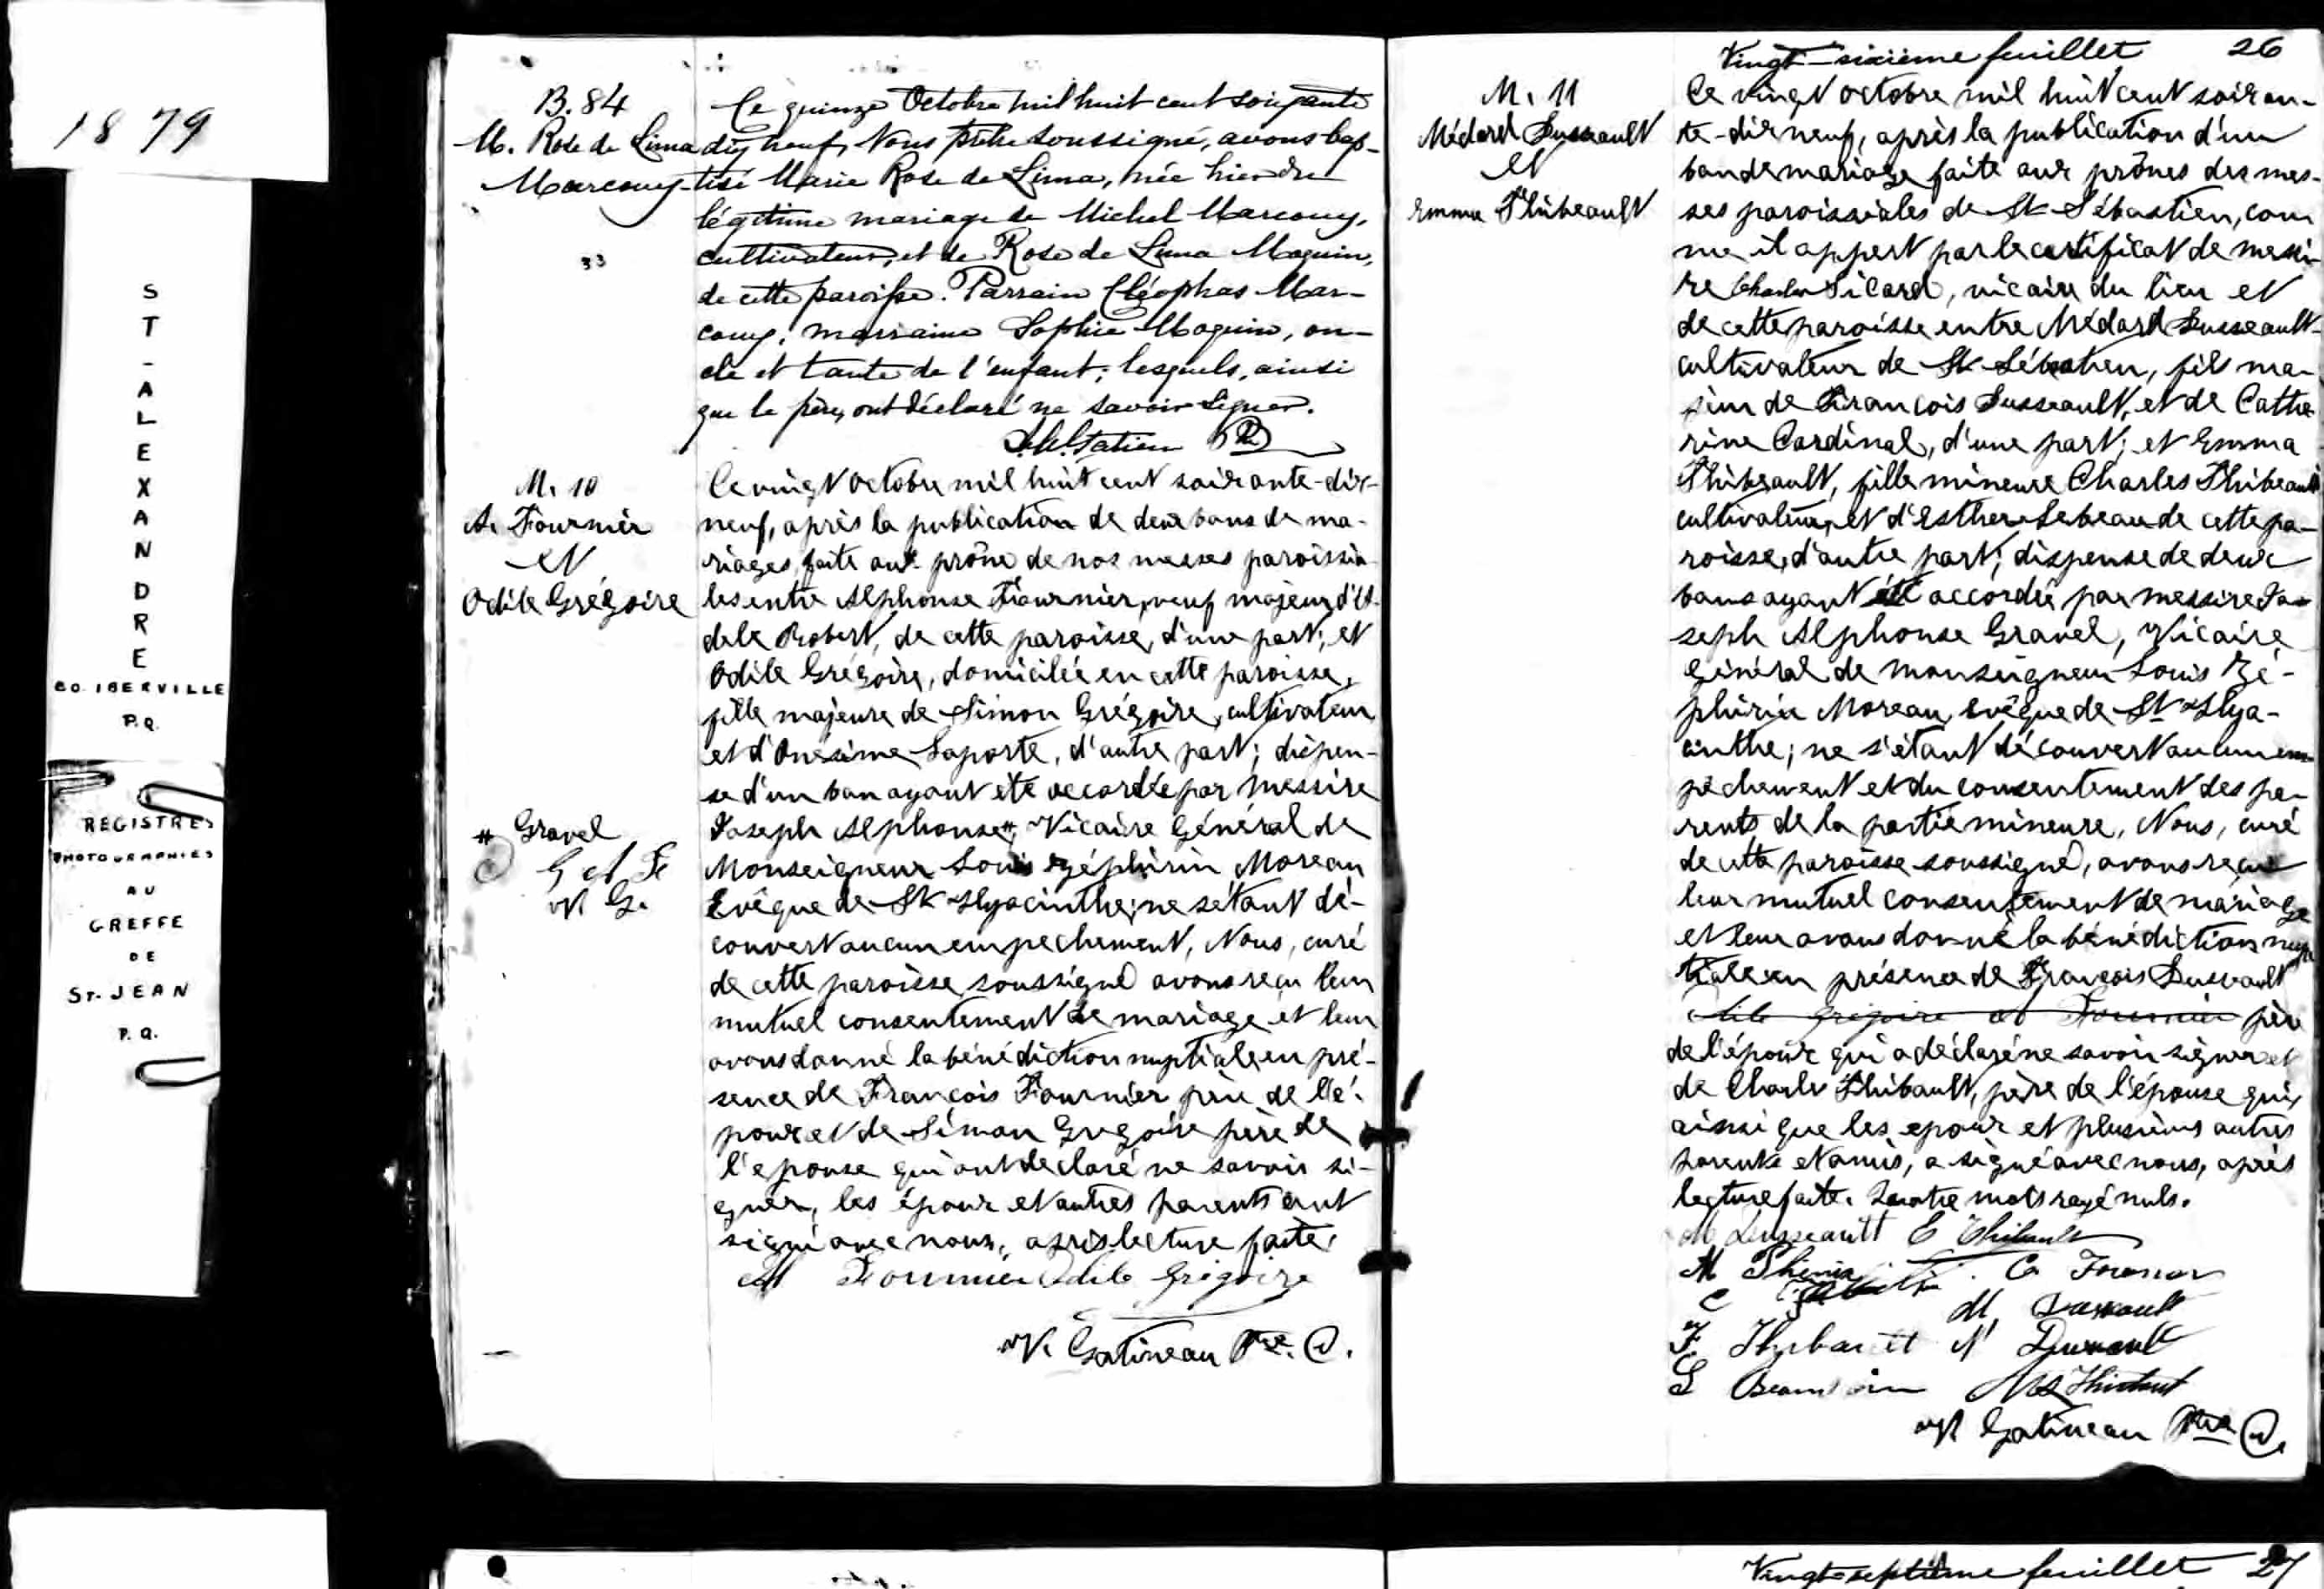 1879
ST-ALEXANDRE
CO. IBERVILLE
P.Q.
REGISTRES
PHOTOGRAPHIÉS
AU
GREFFE
DE
ST-JEAN
P.Q.
B. 84
M. Rose de Lima
Marcoux
33
Ce quinze Octobre mil huit cent soixante
dix neuf, Nous prêtre soussigné, avons bap-
tisé Marie Rose de Lima, née hier du
légitime mariage de Michel Marcoux,
cultivateur, et de Rose de Lima Moquin,
de cette paroisse. Parrain Cléophas Mar-
coux, marraine Sophie Moquin, on-
cle et tante de l'enfant; lesquels, ainsi
que le père, ont déclaré ne savoir signer.
M. 10
A. Fournier
et
Odile Grégoire
# Gravel
Ce vingt octobre mil huit cent soixante-dix-
neuf, après la publication de deux bans de ma-
riages, faite aux prône de nos messes paroissia-
les entre Alphonse Fournier, veuf majeur d'A-
dele Robert, de cette paroisse, d'une part; et
Odile Grégoire, domiciliée en cette paroisse,
fille majeure de Simon Grégoire, cultivateur
et d'Onesime Laporte, d'autre part; dispen-
se d'un ban ayant été accordée par Messire
Joseph Alphonse # Vicaire Général de
Monseigneur Louis Zéphirin Moreau
Evêque de St Hyacinthe; ne s'étant dé-
couvert aucun empechement, Nous, curé
de cette paroisse soussigné avons reçu leur
mutuel consentement de mariage et leur
avons donné la bénédiction nuptiale en pré-
sence de François Fournier père de l'é-
poux et de Simon Grégoire père de
l'epouse qui ont déclaré ne savoir si-
gner, les époux et autres parents ont
signé avec nous, après lecture faite.
Fournier Odile Grégoire
N. Gatineau Ptre. C.
Vingt-sixième feuillet 26
M. 11
Médard Dusseault
et
Emma Thibeault
Ce vingt octobre mil huit cent soixan-
te-dix neuf, après la publication d'un
ban de mariage faite aux prônes des mes-
ses paroissiales de St Sébastien, com
me il appert par le certificat de messi-
re Charles Sicard, vicaire du lieu et
de cette paroisse entre Médard Dusseault
cultivateur de St Sébastien, fils ma-
jeur de François Dusseault, et de Cathe-
rine Cardinal, d'une part; et Emma
Thibeault, fille mineure Charles Thibeault
cultivateur, et d'Esther Lebeau de cette pa-
roisse, d'autre part; dispense de deux
bans ayant été accordée par messire Jo-
seph Alphonse Gravel, Vicaire
Général de Monseigneur Louis Zé-
phirin Moreau evêque de St Hya-
cinthe; ne s'étant découvert aucun em-
pêchement et du consentement des pa-
rents de la partie mineure, Nous, curé
de cette paroisse soussigné, avons reçu
leur mutuel consentement de mariage
et leur avons donné la bénédiction nup
tiale en présence de François Dusseault
Odile Grégoire et Fournier père
de l'époux qui a déclaré ne savoir signer et
de Charles Thibault, père de l'épouse qui,
ainsi que les epoux et plusieurs autres
parents et amis, a signé avec nous, après
lecture faite. Quatre mots rayé nuls.
M Dusseault E Thibault
M
M. Dussault
F
N Dussault
L
N Gatineau Ptre C.
Vingt-septième feuillet 27